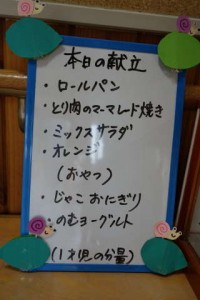 本日の献立
・ロールパン
・とり肉のマーマレード焼き
・ミックスサラダ
・オレンジ
(おやつ)
・じゃこおにぎり
・のむヨーグルト
(1才児の分量)